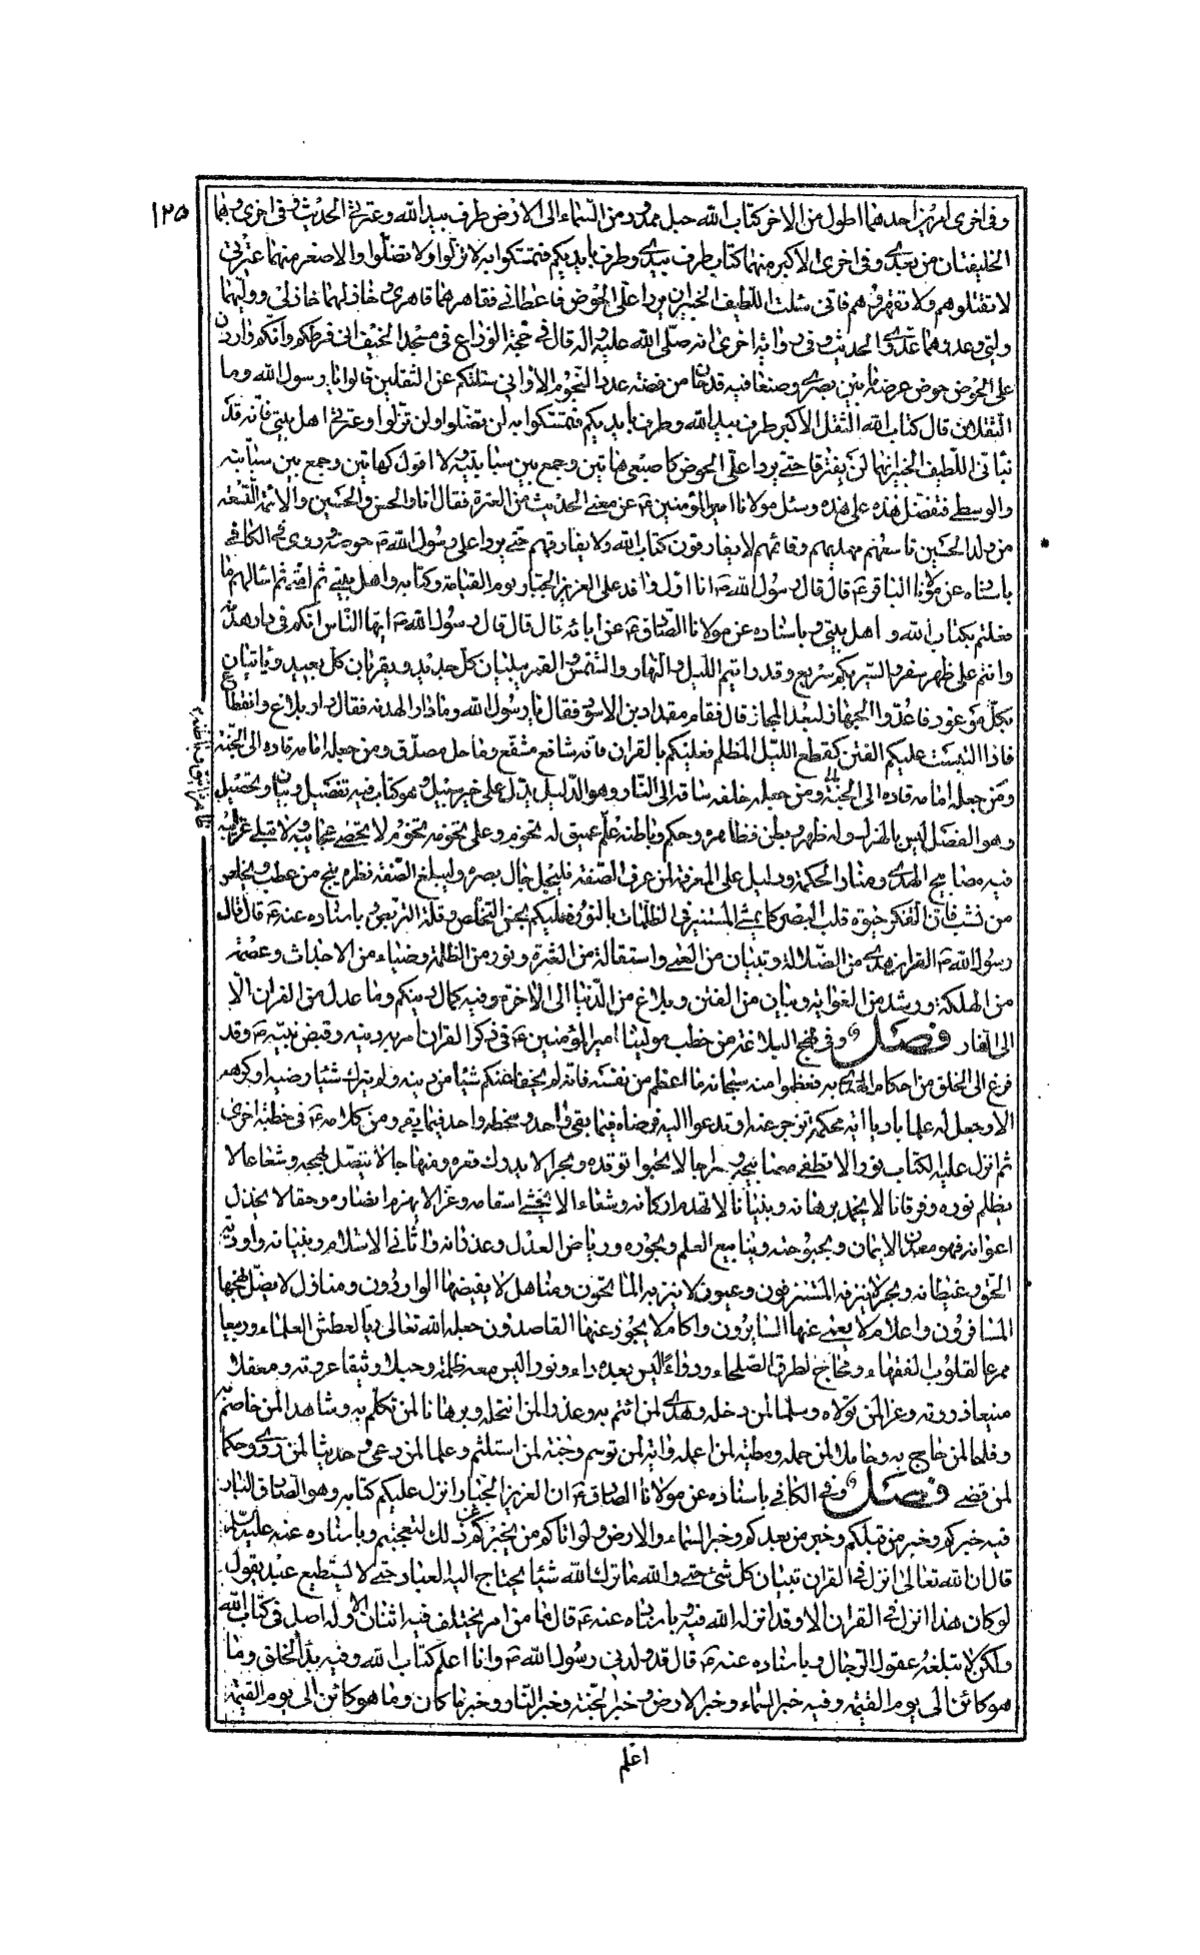 ١٢٥
وفي اخرى امرين احدهما اطول من الاخر كتاب الله حبل ممدود من السماء الى الارض طرف بيد الله وعترتي الحديث وفي اخرى وهما
الخليفتان من بعدي وفي اخرى الاكبر منهما كتاب طرف بيدي وطرف بايديكم فتمسكوا به لا تزلوا ولا تضلوا والاصغر منهما عترتي
لا تقتلوهم ولا تقهروهم فاني سئلت اللطيف الخبير ان يردا على الحوض فاعطاني فقاهرهما قاهري وخاذلهما خاذلي ووليهما
وليي وعدوهما عدوي الحديث وفي رواية اخرى انه صلى الله عليه واله قال في حجة الوداع في مسجد الخيف اني فرطكم وانكم واردون
على الحوض حوض عرضه ما بين بصرى وصنعا فيه قدحان من فضة عدد النجوم الا واني سئلتكم عن الثقلين قالوا يا رسول الله وما
الثقلان قال كتاب الله الثقل الاكبر طرف بيد الله وطرف بايديكم فتمسكوا به لن تضلوا ولن تزلوا وعترتي اهل بيتي فانه قد
نباني اللطيف الخبير انهما لن يفترقا حتى يردا على الحوض كاصبعي هاتين وجمع بين سبابتيه لا اقول كهاتين وجمع بين سبابته
والوسطى فتفضل هذه على هذه وسئل مولانا امير المؤمنين ع عن معنى الحديث من العترة فقال انا والحسن والحسين والائمة التسعة
من ولد الحسين تاسعهم مهديهم وقائمهم لا يفارقون كتاب الله ولا يفارقهم حتى يردوا على رسول الله ص حوضه وروى في الكافي
باسناده عن مولانا الباقر ع قال قال رسول الله ص انا اول وافد على العزيز الجبار يوم القيامة وكتابه واهل بيتي ثم امتي ثم اسالهم ما
فعلتم بكتاب الله و اهل بيتي وباسناده عن مولانا الصادق ع عن ابائه قال قال رسول الله ص ايها الناس انكم في دار هدنة
وانتم على ظهر سفر والسير بكم سريع وقد رايتم الليل والنهار والشمس والقمر يبليان كل جديد ويقربان كل بعيد وياتيان
بكل موعود فاعدوا الجهاز لبعد المجاز قال فقام مقداد بن الاسود فقال يا رسول الله وما دار الهدنة فقال دار بلاغ وانقطاع
فاذا التبست عليكم الفتن كقطع الليل المظلم فعليكم بالقران فانه شافع مشفع وماحل مصدق ومن جعله امامه قاده الى الجنة
ومن جعله امامه قاده الى الجنة ومن جعله خلفه ساقه الى النار وهو الدليل يدل على خير سبيل وهو كتاب فيه تفصيل وبيان وتحصيل
وهو الفصل ليس بالهزل وله ظهر وبطن فظاهره حكم وباطنه علم عميق له تخوم وعلى تخومه تخوم لا تحصى عجائبه ولا تبلى غرائبه
فيه مصابيح الهدى ومنار الحكمة ودليل على المعرفة لمن عرف الصفة فليجل جال بصره وليبلغ الصفة نظره ينج من عطب ويخلص
من نشب فان التفكر حيوة قلب البصير كما يمشي المستنير في الظلمات بالنور فعليكم بحسن التخلص وقلة التربص وباسناده عنه ع قال قال
رسول الله ص القران هدى من الضلالة وتبيان من العمى واستقالة من العثرة ونور من الظلمة وضياء من الاحداث وعصمة
من الهلكة ورشد من الغواية وبيان من الفتن وبلاغ من الدنيا الى الاخرة وفيه كمال دينكم وما عدل من القران الا
الى النار فصل وفي نهج البلاغة من خطب مولينا امير المؤمنين ع في ذكر القران اتم به دينه وقبض نبيه ص وقد
فرغ الى الخلق من احكام الهدى به فعظموا منه سبحانه ما اعظم من نفسه فانه لم يخف عنكم شيئا من دينه ولم يترك شيئا رضيه او كرهه
الا وجعل له علما باديا اية محكمة تزجر عنه او تدعوا اليه فرضاه فيما بقي واحد وسخطه واحد فيما بقي ومن كلامه ع في خطبة اخرى
ثم انزل عليه الكتاب نورا لا تطفى مصابيحه وسراجا لا يخبوا توقده وبحرا لا يدرك قعره ومنهاجا لا يضل نهجه وشعاعا لا
يظلم نوره وفرقانا لا يخمد برهانه وبنيانا لا تهدم اركانه وشفاء لا يخشى اسقامه وعزا لا يهزم انصاره وحقا لا يخذل
اعوانه فهو معدن الايمان وبحبوحته وينابيع العلم وبحوره ورياض العدل وغدرانه واثافي الاسلام وبنيانه واودية
الحق وغيطانه وبحر لا ينزفه المستنزفون وعيون لا ينزبه الماتحون ومناهل لا يغيضها الواردون ومنازل لا يضل نهجها
المسافرون واعلام لا يعمى عنها السائرون واكام لا يجوز عنها القاصدون جعله الله تعالى ريا لعطش العلماء وربيعا
ممرعا لقلوب الفقهاء ومحاج لطرق الصلحاء ودواء ليس بعده داء ونورا ليس معه ظلمة وحبلا وثيقا عروته ومعقلا
منيعا ذروته وعزا لمن تولاه وسلما لمن دخله وهدى لمن ائتم به وعذرا لمن انتحله وبرهانا لمن تكلم به وشاهدا لمن خاصم به
وفلجا لمن حاج به وحاملا لمن حمله ومطية لمن اعمله واية لمن توسم وجنة لمن استلئم وعلما لمن وعى وحديثا لمن روى وحكما
لمن قضى فصل وفي الكافي باسناده عن مولانا الصادق ع ان العزيز الجبار انزل عليكم كتابه وهو الصادق البار
فيه خبركم وخبر من قبلكم وخبر من بعدكم وخبر السماء والارض ولو اتاكم من يخبركم عن ذلك لتعجبتم وباسناده عنه عليه السلام
قال ان الله تعالى انزل في القران تبيان كل شئ حتى والله ما ترك الله شيئا يحتاج اليه العباد حتى لا يستطيع عبد يقول
لو كان هذا انزل في القران الا وقد انزله الله فيه وباسناده عنه ع قال ما من امر يختلف فيه اثنان الا وله اصل في كتاب الله
ولكن لا تبلغه عقول الرجال وباسناده عنه ع قال قد ولدني رسول الله ص وانا اعلم كتاب الله وفيه بدأ الخلق وما
هو كائن الى يوم القيمة وفيه خبر السماء وخبر الارض وخبر الجنة وخبر النار وخبر ما كان وما هو كائن الى يوم القيمة
اعلم